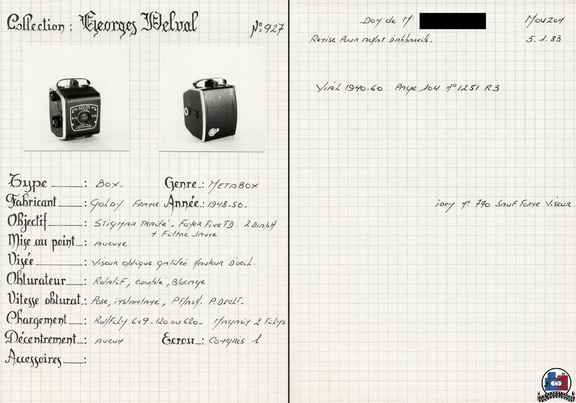 Collection : Georges Delval N° 927
Type : Box. Genre : METABOX
Fabricant : Goldy France Année : 1948-50.
Objectif : Stigmar traité. Foyer Fixe TD. 2 Diaph
+ Filtre Jaune
Mise au point : aucune
Visée : Viseur optique Hauteur D'oeil.
Obturateur : Rotatif, couplé,
Vitesse obturat. : Pose, instantané, P. Decl.
Chargement : Rollfilm 6x9. 120 ou 620. Magasin 2 Films
Décentrement : aucun Ecrou : Congrès 1
Accessoires :
Don de M Mouzon
Remise Pour 5.1.83
Vial 1940.60 Page 104 n° 1251 R3
idem n° 790 sauf Forme Viseur